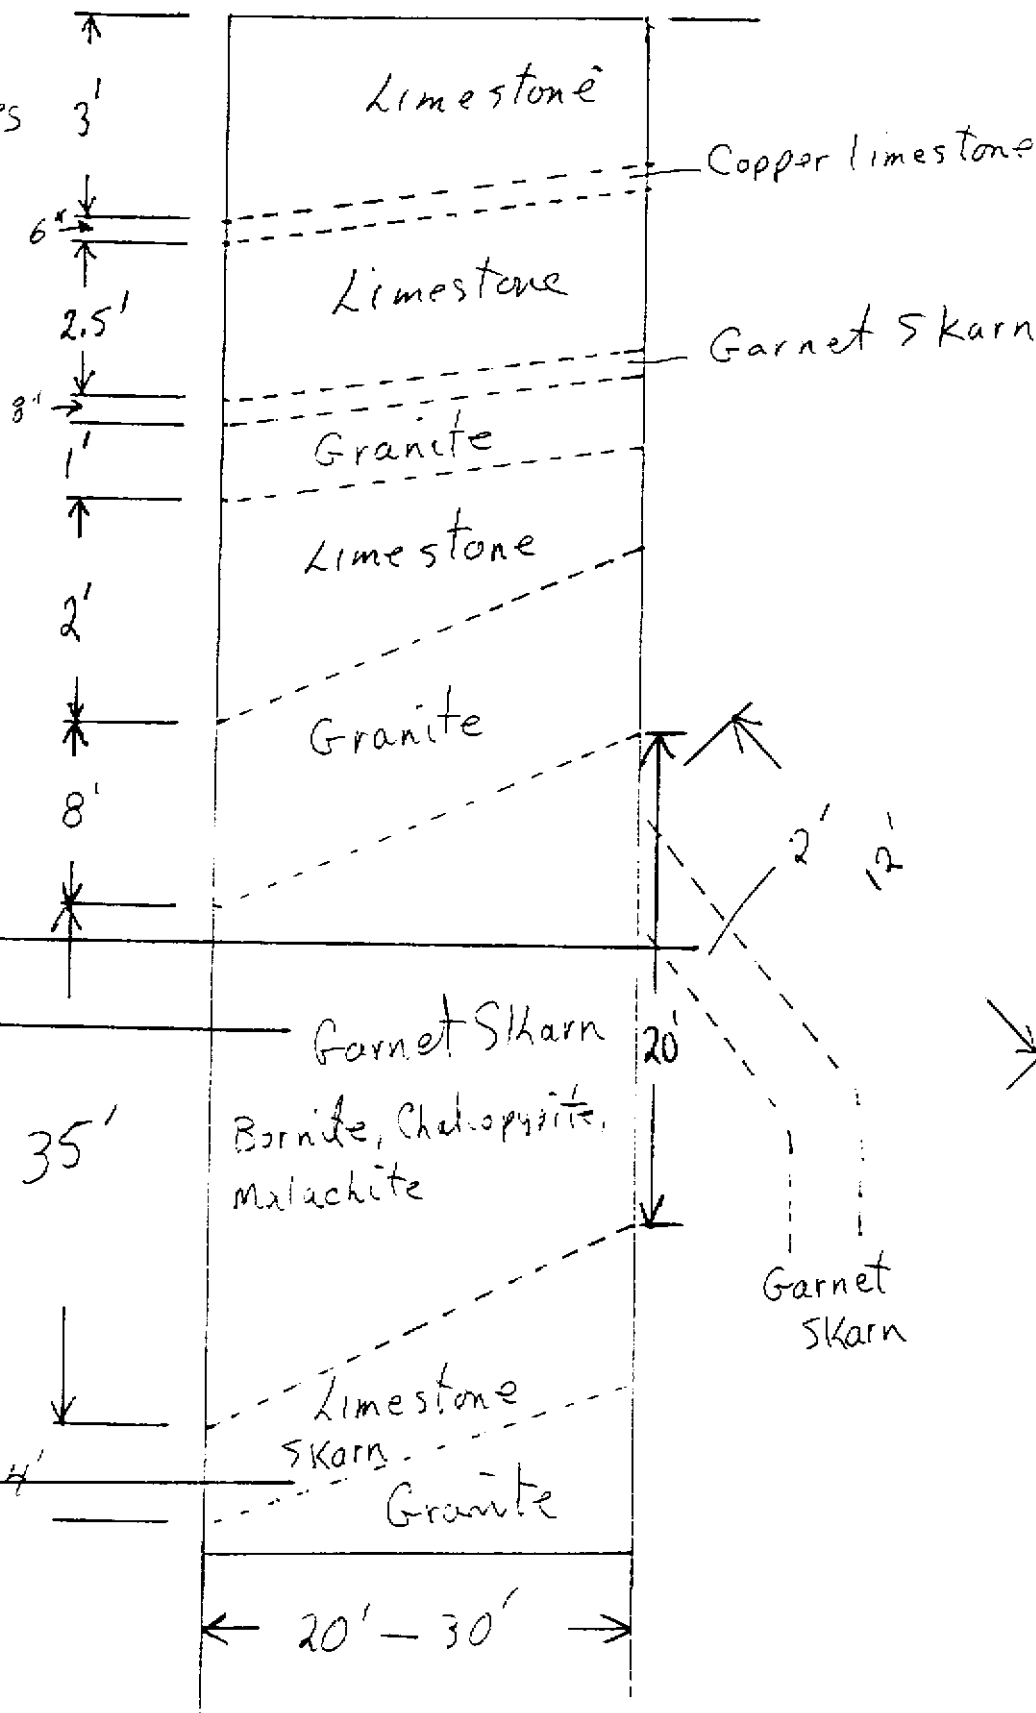 3'
Limestone
Copper limestone
6"
Limestone
2.5'
Garnet Skarn
1'
Granite
Limestone
2'
Granite
8'
2'
12'
Garnet Skarn
20'
35'
Bornite, Chalcopyrite,
Malachite
Garnet
Skarn
Limestone
Skarn
4'
Granite
20' – 30'